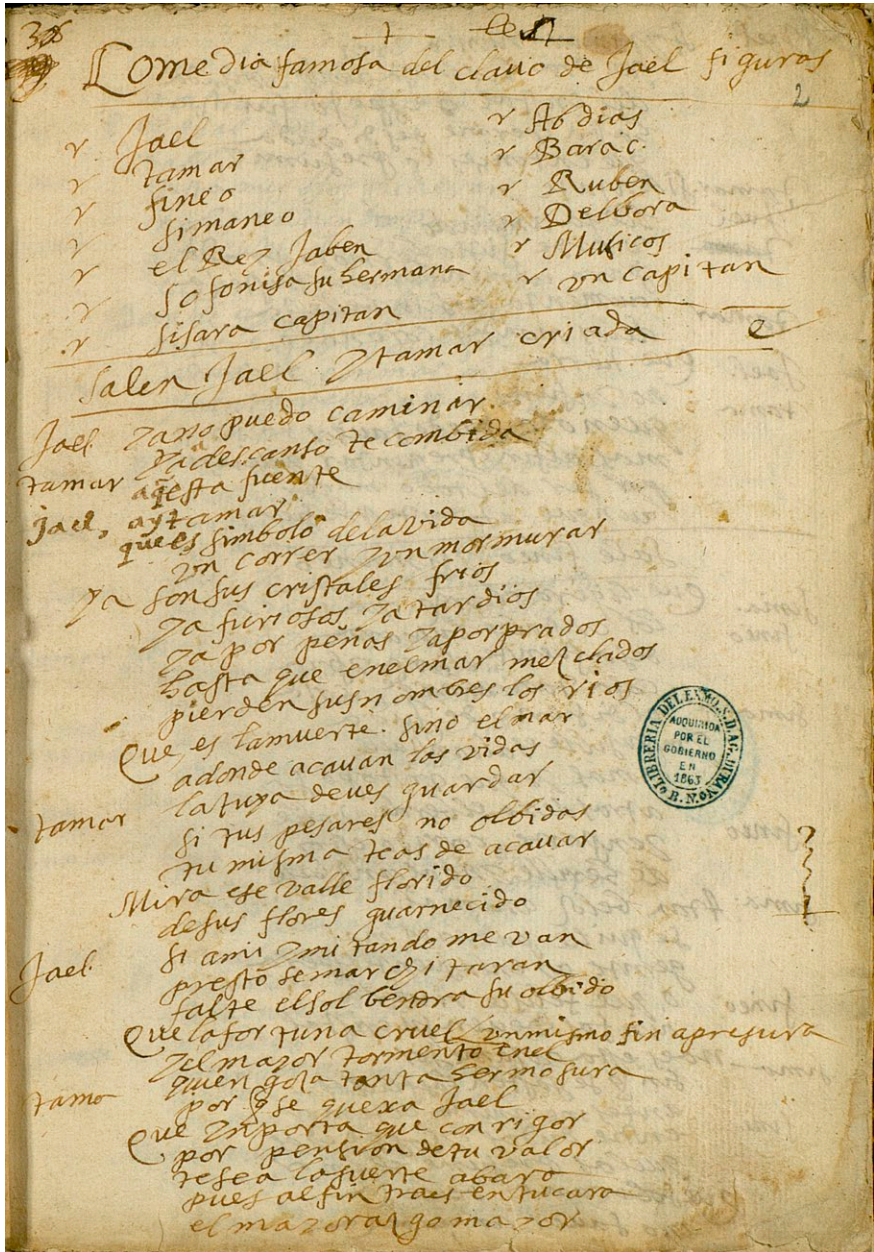 Comedia famosa del clauo de Jael figuras
2
Jael
tamar
fineo
simaneo
el Rey Jaben
Sofonisa su hermana
sisara capitan
Abdias
Barac.
Ruben
Delbora
Musicos
vn capitan
Salen Jael y tamar criada
Jael ya no puedo caminar.
tamar ya descanso te combida
aqsta fuente
jael, ay tamar
que es simbolo de la vida
vn correr y vn mormurar
ya son sus cristales frios
ya furiosos ya tardios
ya por peñas ya por prados
hasta que en el mar mezclados
pierden sus nombres los rios
Que es la muerte. sino el mar
adonde acauan las vidas
tamar la tuya deues guardar
si tus pesares no olbidas
tu misma teas de acauar
Mira ese valle florido
de sus flores guarnecido
Jael. si a mi ymitando me van
presto se marchitaran
falte el sol bendra su olbido
Que la fortuna cruel vn mismo fin apresura
y el mayor tormento en el
quien goça tanta hermosura
tama por q se quexa Jael
Que ynporta que con rigor
por pension de tu valor
te sea la suerte abara
pues al fin traes en tu cara
el mayorazgo mayor
LIBRERIA DEL EXMO. S. D. AG. DURAN
ADQUIRIDA
POR EL
GOBIERNO
EN
1863
B. N.